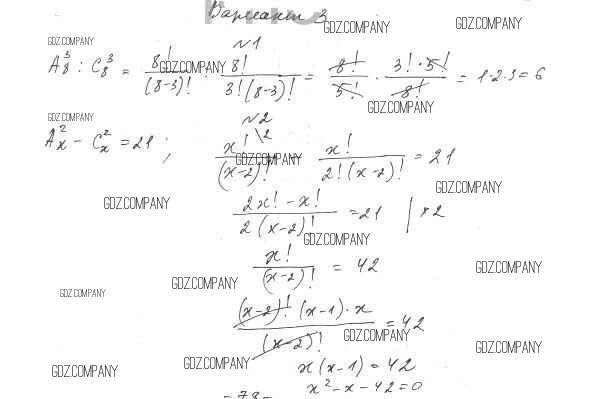 Вариант 3
GDZ.COMPANY GDZ.COMPANY
GDZ.COMPANY
№1
A₈³ : C₈³ = 8!/(8-3)! : 8!/3!(8-3)! = 8!/5! · 3!·5!/8! = 1·2·3=6
GDZ.COMPANY
GDZ.COMPANY
GDZ.COMPANY
№2
Aₓ² - Cₓ² = 21 ; x!\2/(x-2)! - x!/2!(x-2)! = 21
GDZ.COMPANY
GDZ.COMPANY
GDZ.COMPANY
2x! - x!/2(x-2)! = 21 | ×2
GDZ.COMPANY
x!/(x-2)! = 42
GDZ.COMPANY
GDZ.COMPANY
GDZ.COMPANY
(x-2)! (x-1)·x/(x-2)! = 42
GDZ.COMPANY
GDZ.COMPANY
GDZ.COMPANY
x(x-1) = 42
GDZ.COMPANY
x² - x - 42 = 0
- 78 -